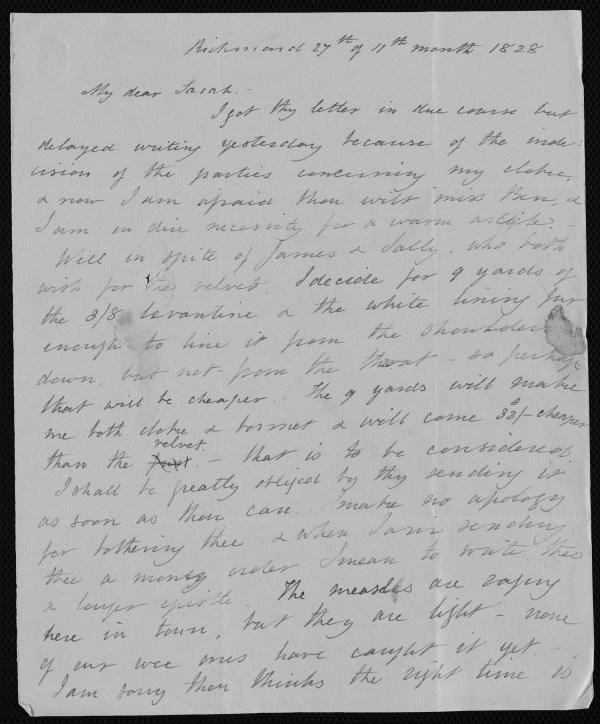 Richmond 27th of 11th month 1828
My dear Sarah.-
I got thy letter in due course but
delayed writing yesterday because of the inde-
cision of the parties concerning my cloke,
& now I am afraid thou wilt miss Ben, &
I am in dire necessity for a warm article.-
Well in spite of James & Sally, who both
wish for the velvet. I decide for 9 yards of
the 3/8 levantine & the white lining fur
enough to line it from the shoulder
down, but not from the throat - so perhaps
that will be cheaper.- The 9 yards will make
me both cloke & bonnet & will come 32/- cheaper
than the velvet.- that is to be considered.
I shall be greatly obliged by thy sending it
as soon as thou can. I make no apology
for bothering thee & when I am sending
thee a money order I mean to write thee
a longer epistle. The measles are raging
here in town, but they are light - none
of our wee ones have caught it yet.-
I am sorry thou thinks the right time is